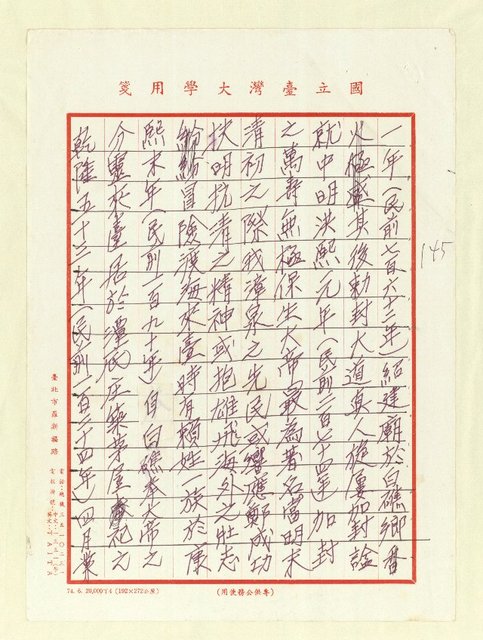 國立臺灣大學用箋
145
一年（民前七百六十三年）紹建廟於白礁鄉香
火極盛其後勅封大道真人從屢加封諡
就中明洪熙元年（民前四百八十四年）加封
之萬壽無極保生大帝最為著名當明末
清初之際我漳泉之先民或響應鄭成功
扶明抗清之精神或抱雄飛海外之壯志
紛紛冒險渡海來臺時有賴姓一族於康
熙末年（民前一百九十年）自白礁奉大帝之
分靈來臺居於潭底庄築茅屋奉祀之
乾隆五十三年（民前一百二十四年）四月業
臺北市羅斯福路
74. 6. 20,000丁4 (192×272公厘)
(專供公務使用)